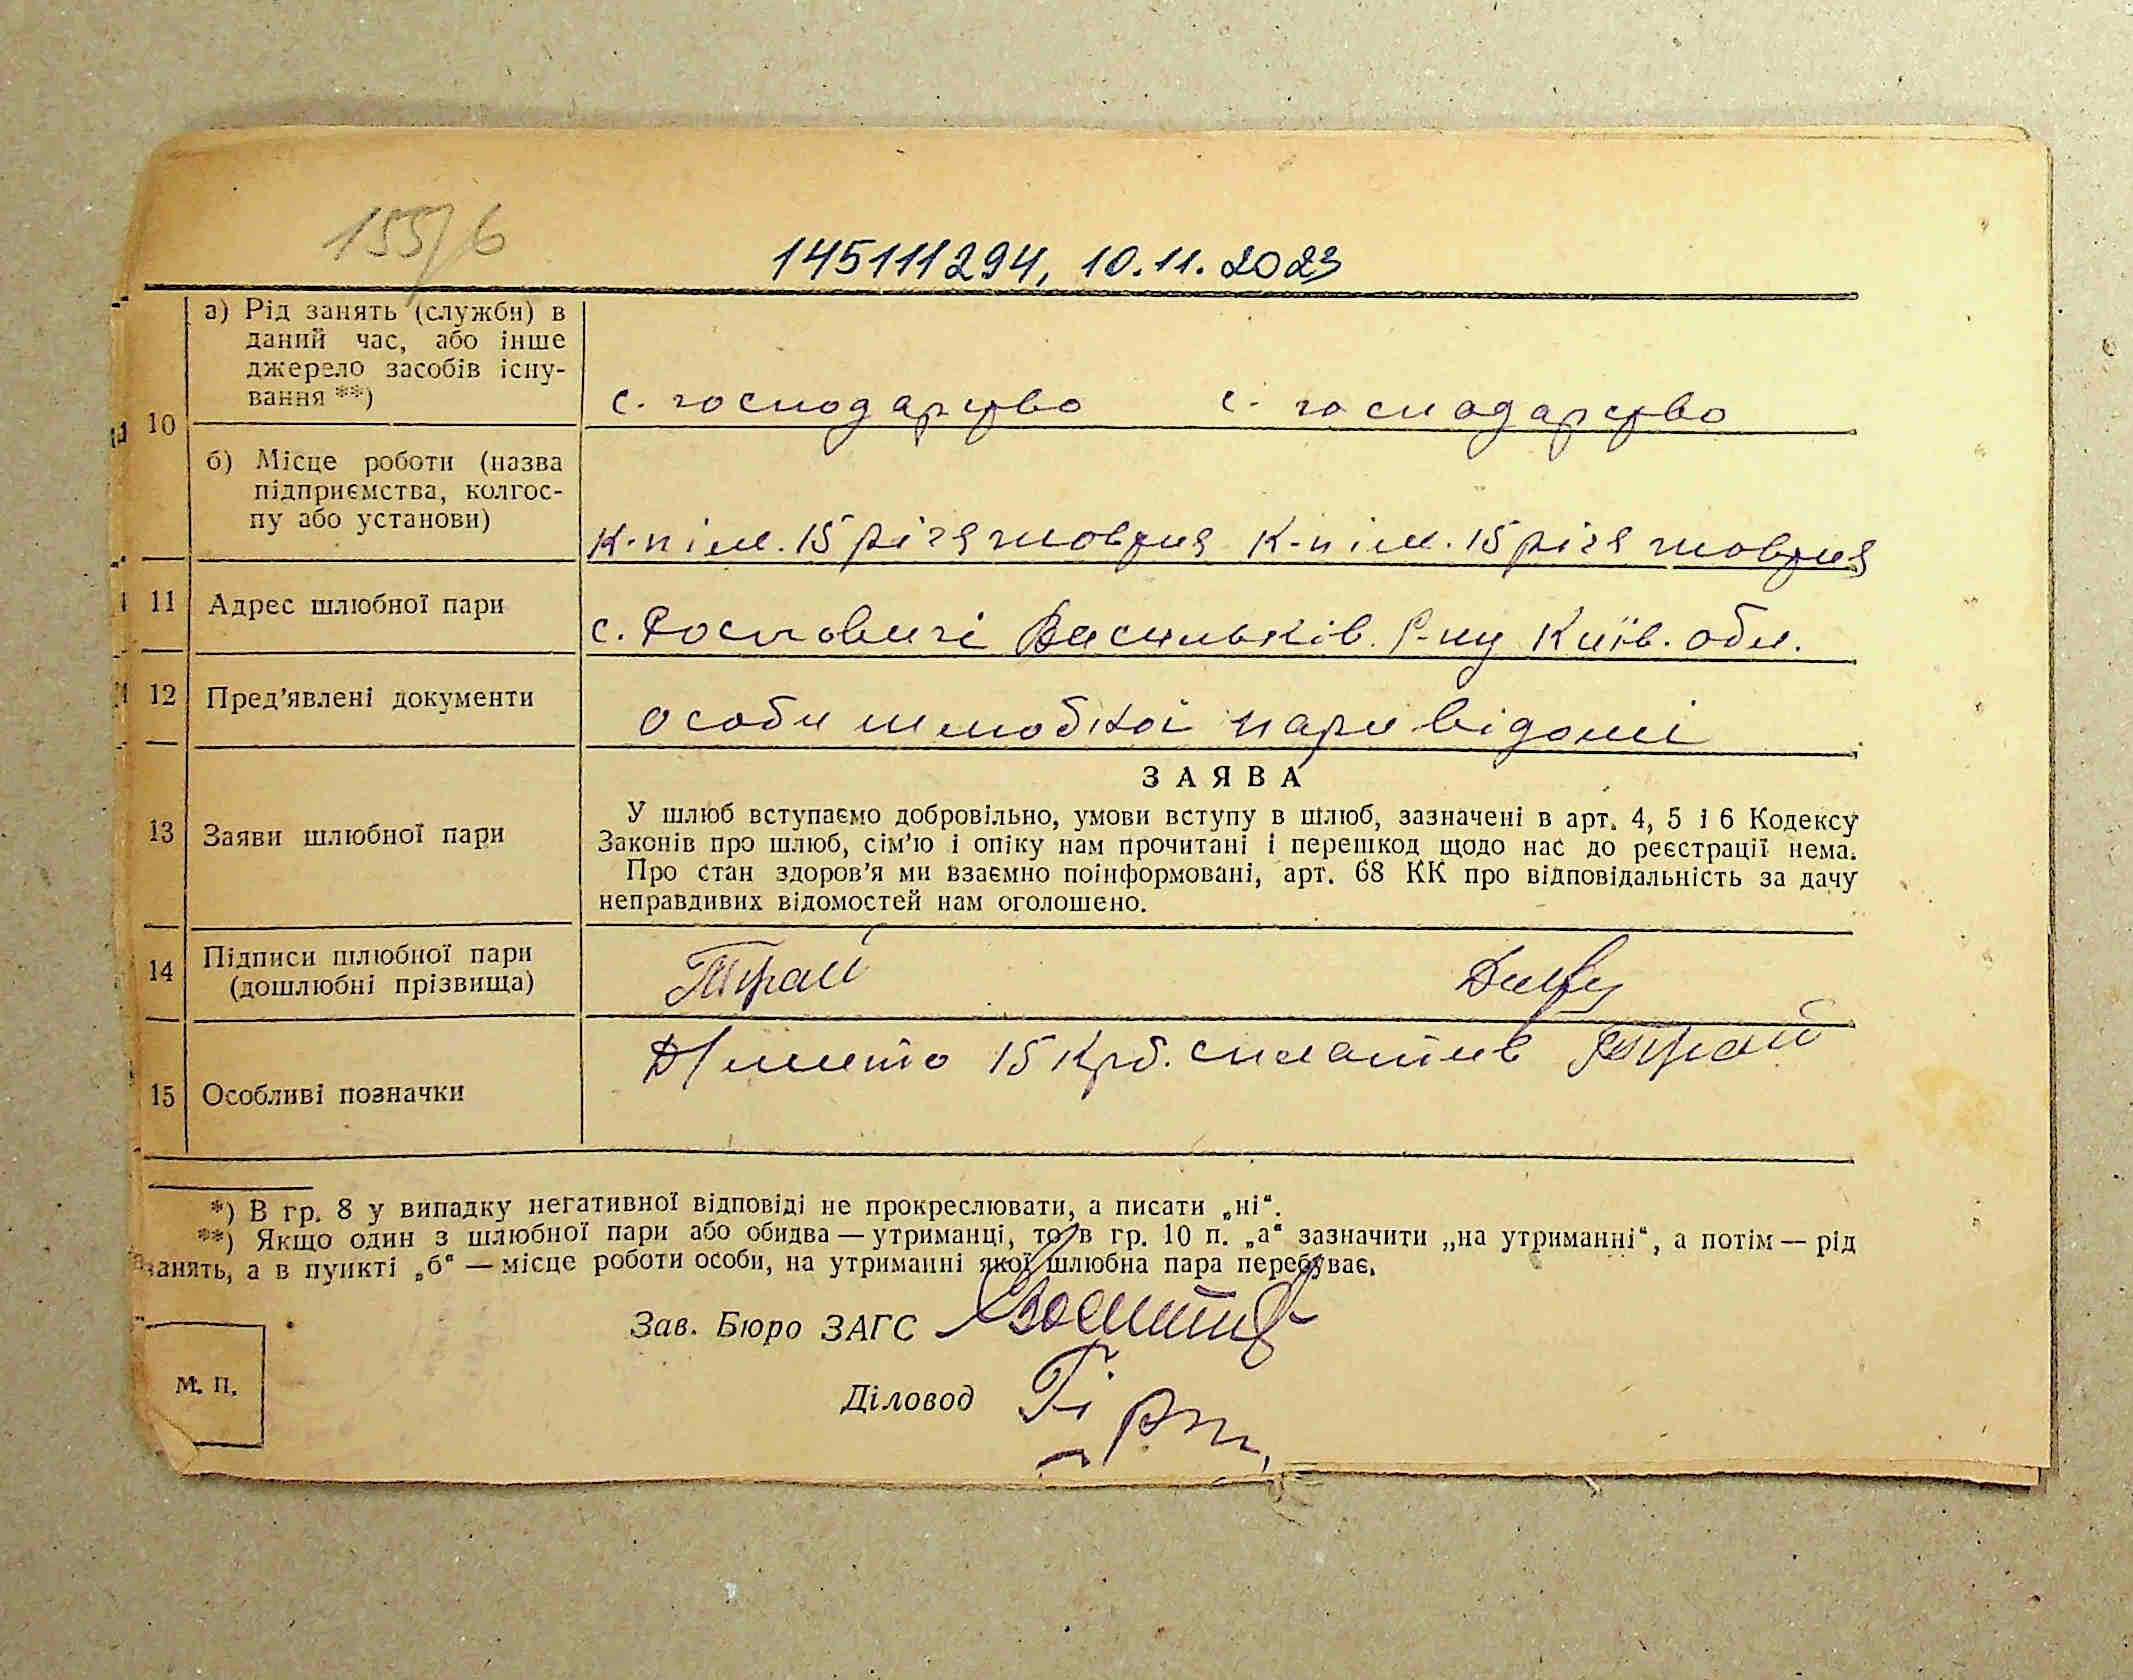 155/6
145111294, 10.11.2023
10
а) Рід занять (служби) в
даний час, або інше
джерело засобів існу-
вання **)
с. господарство с. господарство
б) Місце роботи (назва
підприємства, колгос-
пу або установи)
к-п ім. 15 річя жовтня к-п ім. 15 річя жовтня
11 Адрес шлюбної пари
с. Застовигі Васильків. р-ну Київ. обл.
12 Пред'явлені документи
особи шлюбної пари відомі
ЗАЯВА
13 Заяви шлюбної пари
У шлюб вступаємо добровільно, умови вступу в шлюб, зазначені в арт. 4, 5 і 6 Кодексу
Законів про шлюб, сім'ю і опіку нам прочитані і перешкод щодо нас до реєстрації нема.
Про стан здоров'я ми взаємно поінформовані, арт. 68 КК про відповідальність за дачу
неправдивих відомостей нам оголошено.
14 Підписи шлюбної пари
(дошлюбні прізвища)
15 Особливі позначки
Д/мито 15 крб. сплатив
*) В гр. 8 у випадку негативної відповіді не прокреслювати, а писати „ні“.
**) Якщо один з шлюбної пари або обидва — утриманці, то в гр. 10 п. „а“ зазначити „на утриманні“, а потім — рід
занять, а в пункті „б“ — місце роботи особи, на утриманні якої шлюбна пара перебуває.
Зав. Бюро ЗАГС
Діловод
М. П.